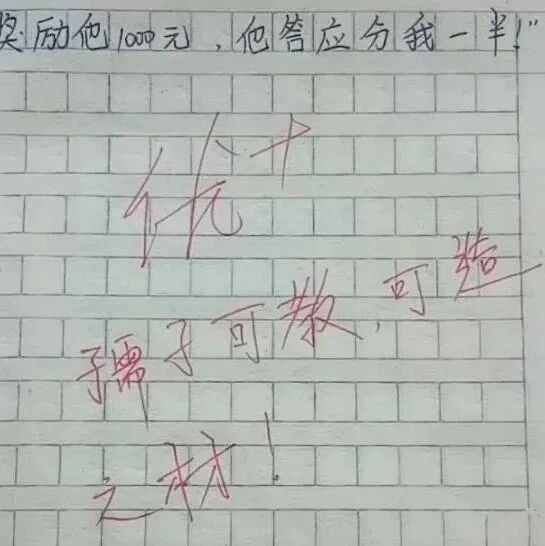 奖励他1000元，他答应分我一半！”
优+
孺子可教，可造
之材！